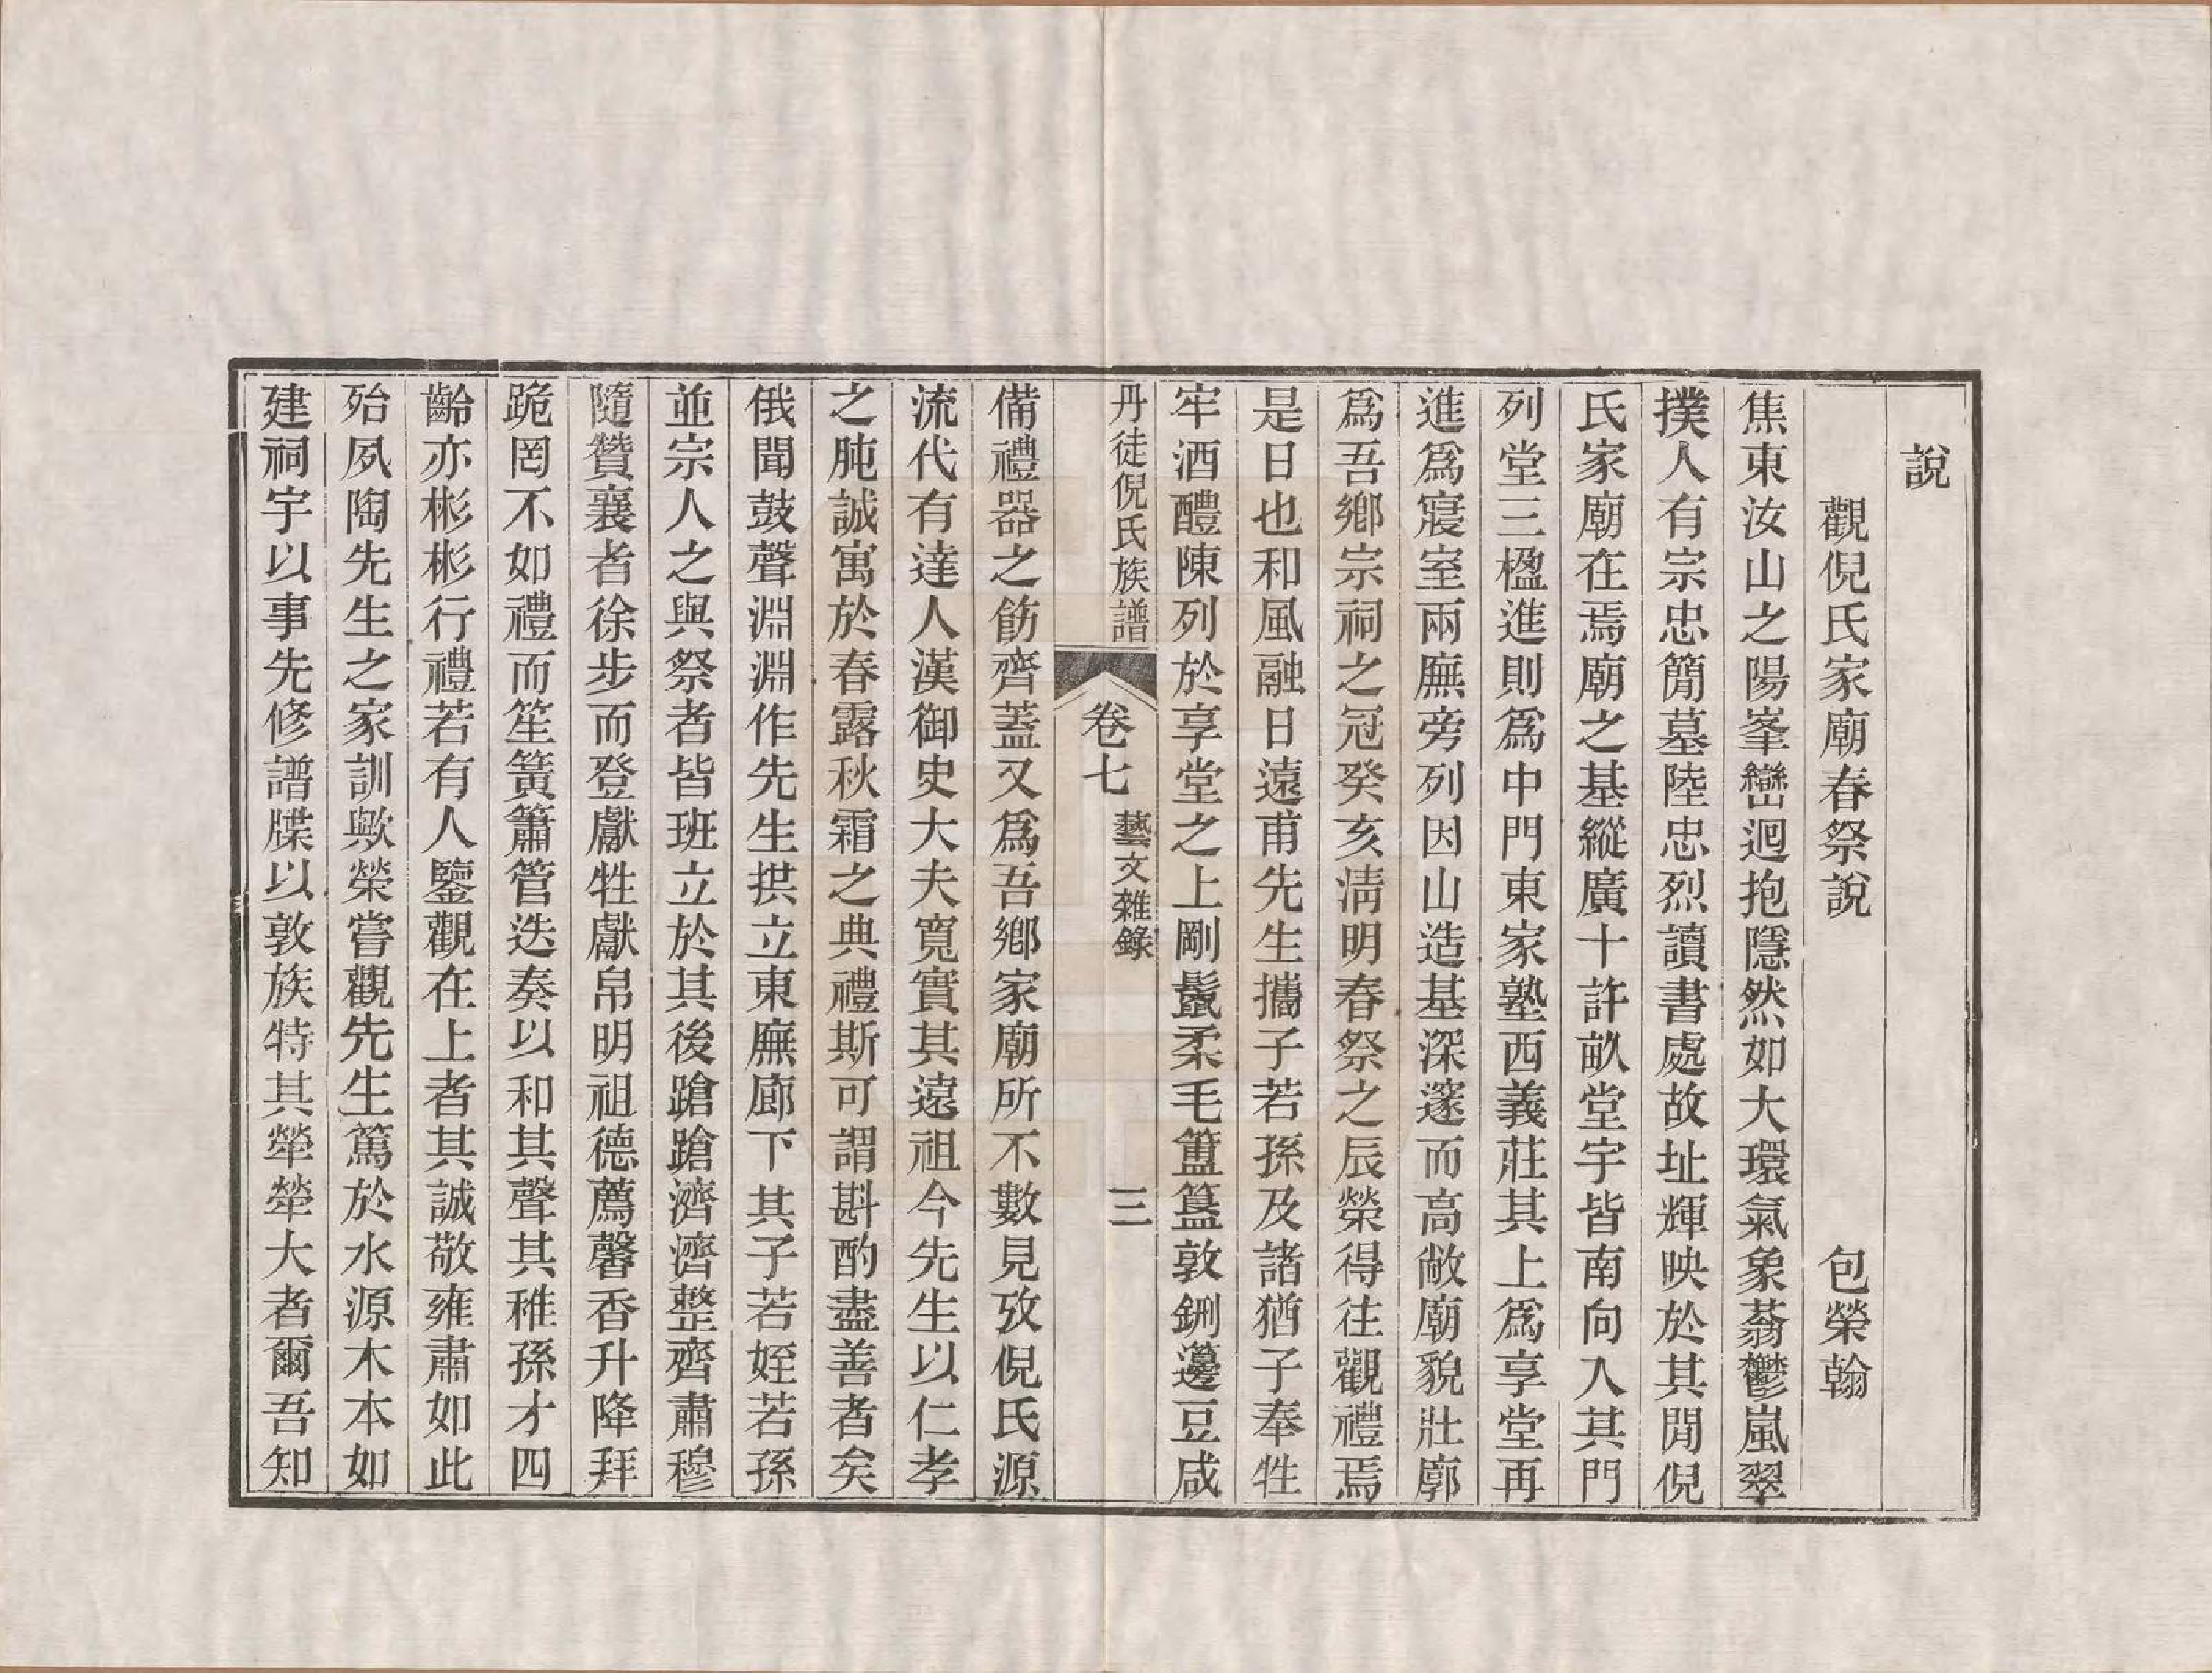 說
觀倪氏家廟春祭說　包榮翰
焦東汝山之陽峯巒迴抱隱然如大環氣象蓊鬱嵐翠
撲人有宗忠簡墓陸忠烈讀書處故址輝映於其閒倪
氏家廟在焉廟之基縱廣十許畝堂宇皆南向入其門
列堂三楹進則爲中門東家塾西義莊其上爲享堂再
進爲寢室兩廡旁列因山造基深邃而高敞廟貌壯廓
爲吾鄉宗祠之冠癸亥淸明春祭之辰榮得往觀禮焉
是日也和風融日遠甫先生攜子若孫及諸猶子奉牲
牢酒醴陳列於享堂之上剛鬣柔毛簠簋敦鉶籩豆咸
丹徒倪氏族譜　卷七　藝文雜錄　三
備禮器之飭齊蓋又爲吾鄉家廟所不數見攷倪氏源
流代有達人漢御史大夫寬實其遠祖今先生以仁孝
之肫誠寓於春露秋霜之典禮斯可謂斟酌盡善者矣
俄聞鼓聲淵淵作先生拱立東廡廊下其子若姪若孫
並宗人之與祭者皆班立於其後蹌蹌濟濟整齊肅穆
隨贊襄者徐步而登獻牲獻帛明祖德薦馨香升降拜
跪罔不如禮而笙簧簫管迭奏以和其聲其稚孫才四
齡亦彬彬行禮若有人鑒觀在上者其誠敬雍肅如此
殆夙陶先生之家訓歟榮嘗觀先生篤於水源木本如
建祠宇以事先修譜牒以敦族特其犖犖大者爾吾知